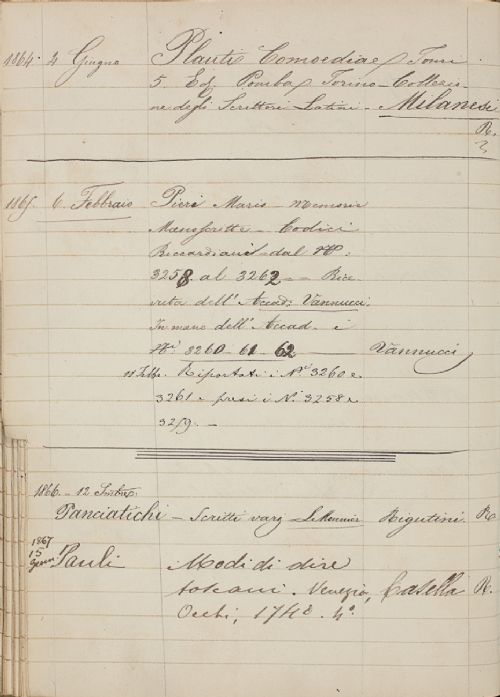 1864. 4 Giugno Plauti Comoediae, Tomi
5 Ed. Pomba, Torino - Collezio-
ne degli Scrittori Latini - Milanese
R.
1865. 6 Febbraio Pieri Mario - Memorie
Manoscritte - Codici
Riccardiani dal N°:
3258 al 3262 - Rice-
vuta dell' Accad: Vannucci.
In mano dell' Accad. i
N.i 3260 - 61 - 62 - Vannucci
11 Febb. Riportati i N.i 3260 e
3261 e presi i N.i 3258 e
3259. -
1866 - 12
Panciatichi - Scritti varj Le Monnier Rigutini. R.
1867
15
Genn. Pauli Modi di dire
toscani. Venezia, Casella R.
Occhi, 1740. 4°.